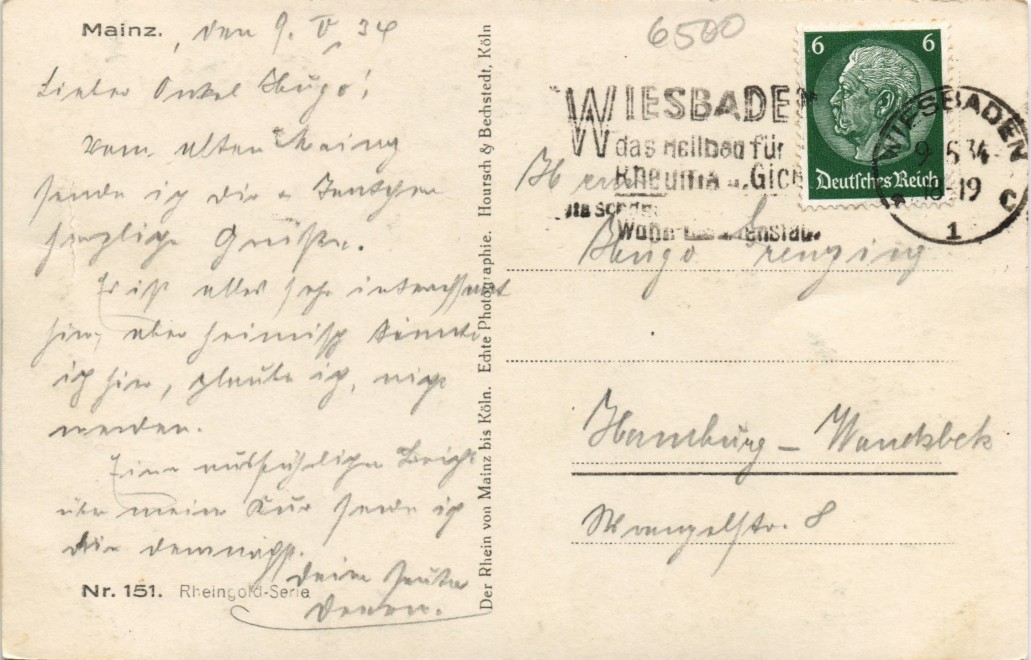 Mainz., den 9. V. 34
Lieber Onkel Hugo!
Vom alten Mainz
sende ich dir
herzliche Grüße.
Es ist alles sehr interessant
hier, aber heimisch könnte
ich hier, glaube ich, nicht
werden.
Einen ausführlichen Bericht
über meine Kur sende ich
dir demnächst.
Nr. 151. Rheingold-Serie
Deine
Der Rhein von Mainz bis Köln. Echte Photographie. Hoursch & Bechstedt, Köln
6500
WIESBADEN
das Heilbad für
Rheuma u. Gicht
6 6
Deutsches Reich
WIESBADEN
34
-19
C
1
Herrn
Hugo
Hamburg - Wandsbek
Wrangelstr. 8